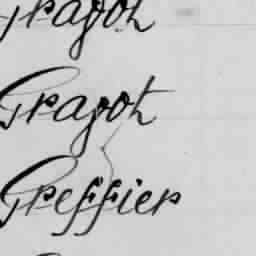 Gragot
Gragot
Greffier